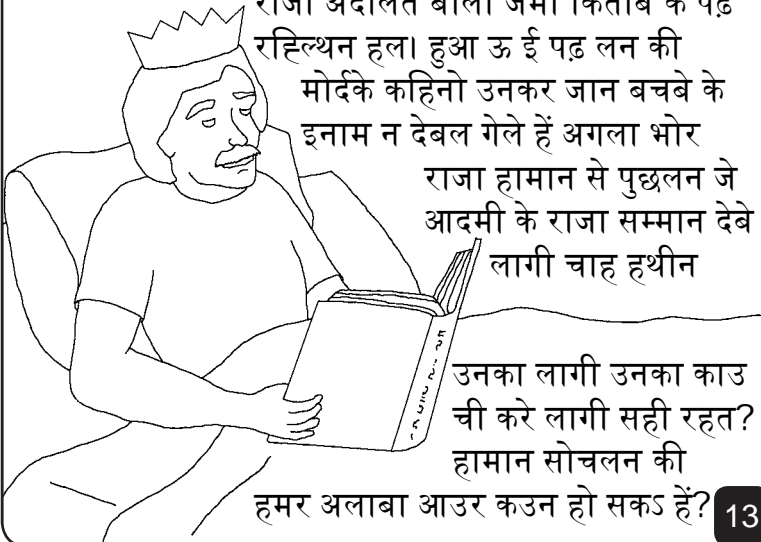 राजा अदालत बाला जमा किताब के पढ़
रहिल्थन हल। हुआ ऊ ई पढ़ लन की
मोर्दके कहिनो उनकर जान बचबे के
इनाम न देबल गेले हें अगला भोर
राजा हामान से पुछलन जे
आदमी के राजा सम्मान देबे
लागी चाह हथीन
उनका लागी उनका काउ
ची करे लागी सही रहत?
हामान सोचलन की
हमर अलाबा आउर कउन हो सकऽ हें?
13